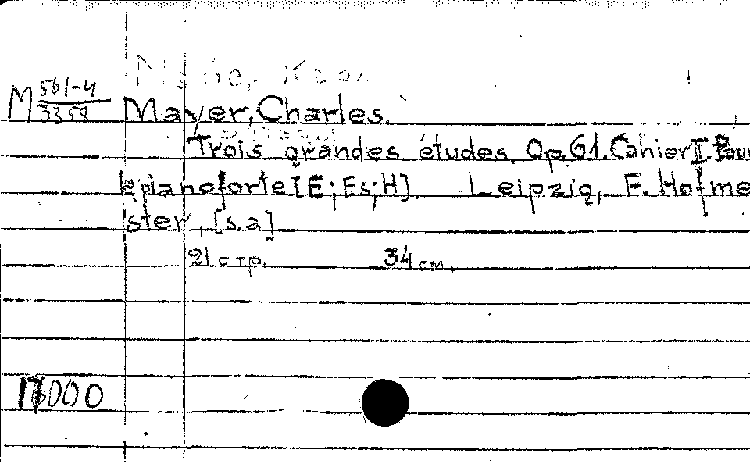 M 561-4
3359
Mayer, Charles.
Trois grandes études. Op.61. Cahier II. Pour
le pianoforte [E; Es; H]. Leipzig, F. Hofme
ster, [s.a]
21 стр. 34 см.